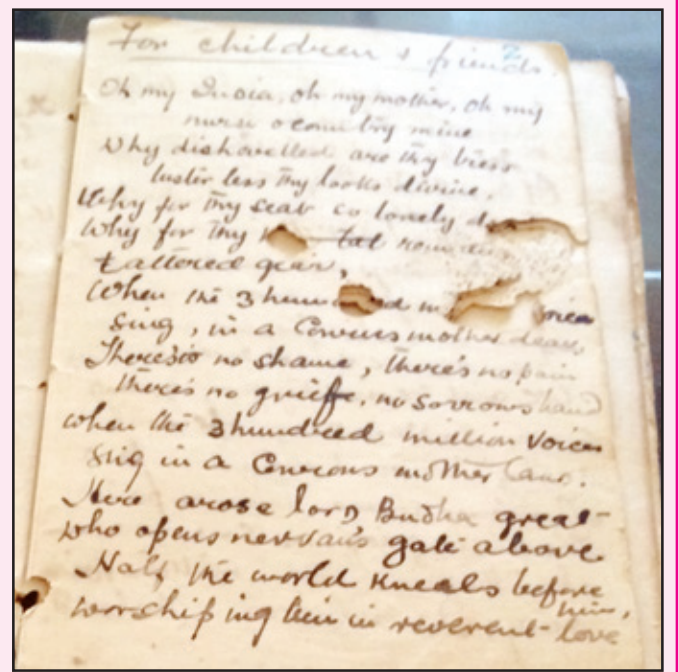 For children & friends.
2
Oh my India, oh my mother, oh my
nurse o country mine
Why dishovelled are thy tress
luster less thy looks divine.
Why for thy seat so lonely
Why for thy
tattered gear,
When the 3 hun
sing, in a mother dear,
There's no shame, there's no pain
there's no grieffe, no sorrows hand
when the 3 hundred million voices
sing in a mother land.
Here arose lord Budha great
who opens nervan's gate above
Half the world kneals before
him,
worshiping him in reverent love